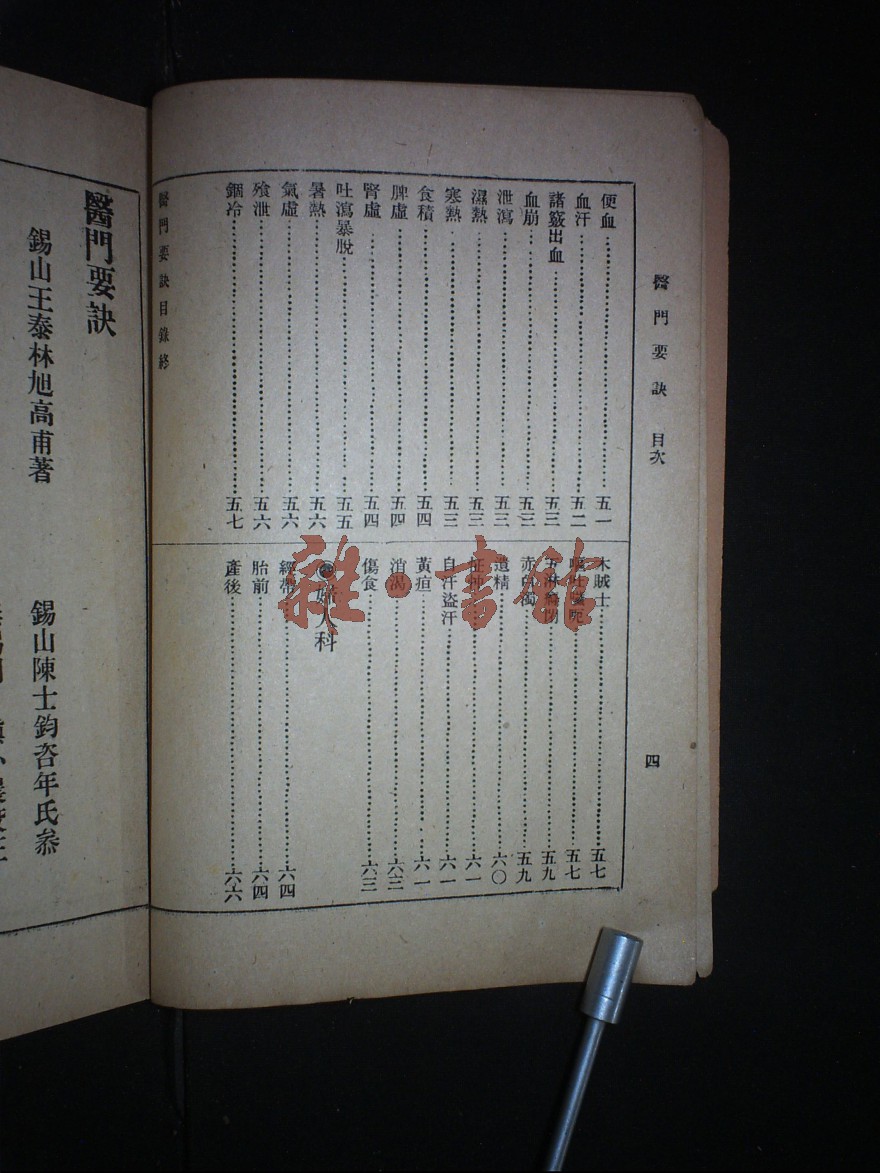 醫門要訣 目次
四
便血 五一
血汗 五二
諸竅出血 五三
血崩 五三
泄瀉 五三
濕熱 五三
寒熱 五三
食積 五四
脾虛 五四
腎虛 五四
吐瀉暴脫 五五
暑熱 五六
氣虛 五六
飱泄 五六
錮冷 五七
醫門要訣目錄終
木賊土 五七
五七
五九
五九
遺精 六〇
怔忡 六一
自汗盜汗 六一
黃疸 六一
消渴 六三
傷食 六三
婦人科
經帶 六四
胎前 六四
產後 六六
雜·書館
醫門要訣
錫山王泰林旭高甫著
錫山陳士鈞咨年氏叅